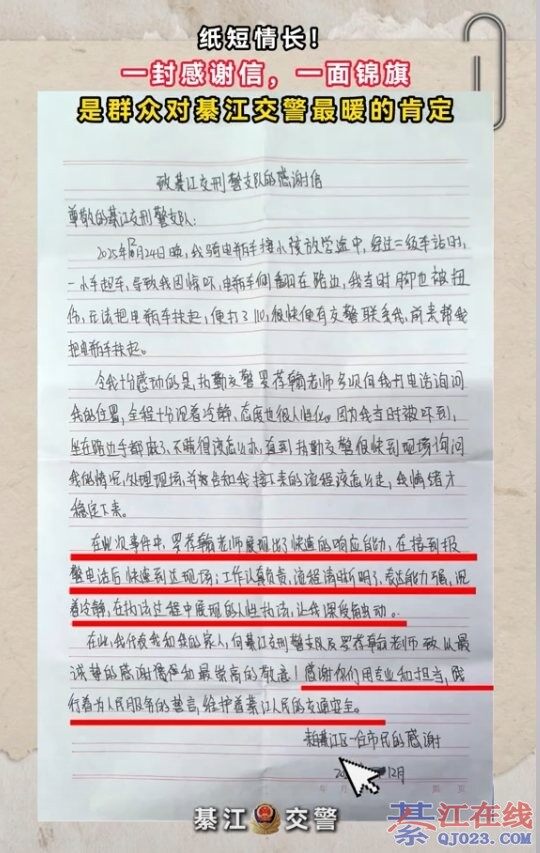 纸短情长！
一封感谢信，一面锦旗
是群众对綦江交警最暖的肯定
致綦江交刑警支队的感谢信
尊敬的綦江交刑警支队：
2025年 月24日晚，我骑电瓶车接小孩放学途中，经过二级车站时，
一小车起车，导致我因惊吓，电瓶车侧翻在路边，我当时脚也被扭
伤，无法把电瓶车扶起，便打了110，很快便有交警联系我，前来帮我
把电瓶车扶起。
令我十分感动的是，执勤交警罗荐翰老师多次向我打电话询问
我的位置，全程十分沉着冷静，态度也很人性化。因为我当时被吓到，
坐在路边手都麻了，不晓得该怎么办，直到执勤交警很快到现场询问
我的情况，处理现场，并被告和我接下来的流程该怎么走，我情绪才
稳定下来。
在此次事件中，罗荐翰老师展现出了快速的响应能力，在接到报
警电话后快速到达现场；工作认真负责，流程清晰明了，表达能力强，沉
着冷静，在执法过程中展现的人性执法，让我深受触动。
在此，我代表我和我的家人，向綦江交刑警支队及罗荐翰老师致以最
诚挚的感谢 和最崇高的敬意！感谢你们用专业和担当，践
行着为人民服务的誓言，维护着綦江人民的交通安全。
綦江区一位市民的感谢
12月
年 月 第 页
綦江 交警
綦江在线
QJ023.com